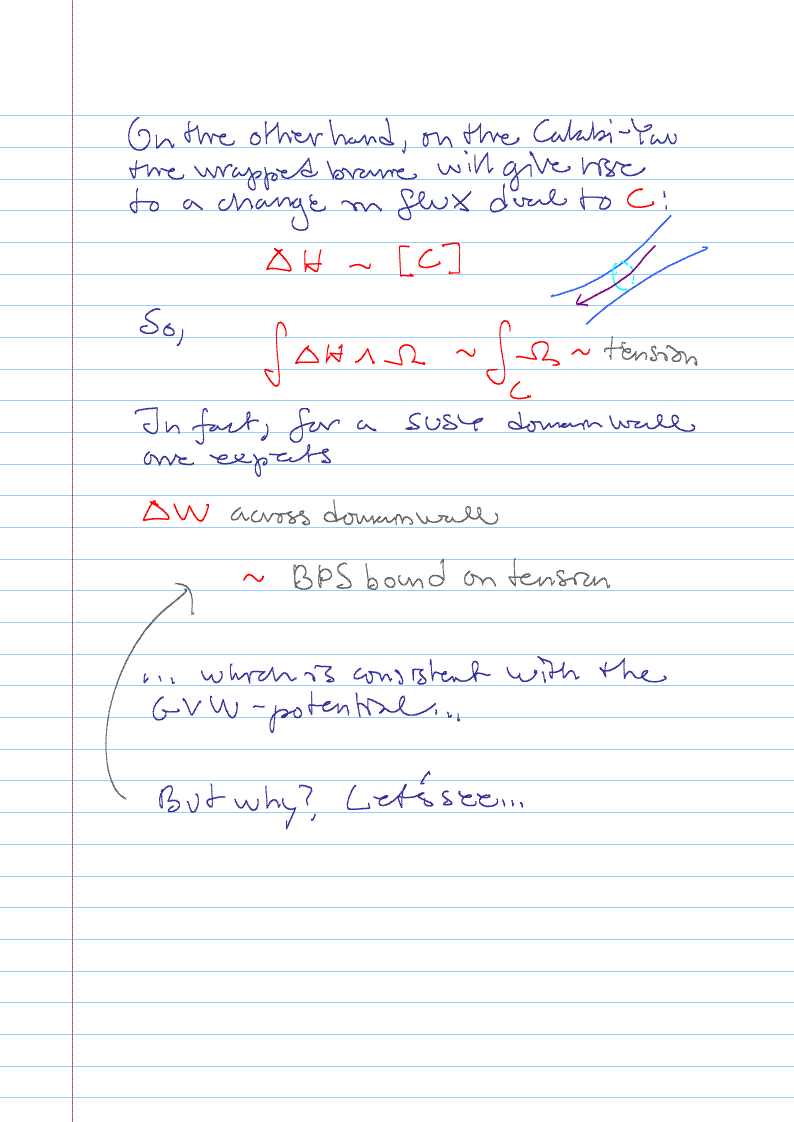 On the other hand, on the Calabi-Yau
the wrapped brane will give rise
to a change in flux dual to C:
ΔH ~ [C]
So,
∫ ΔH ∧ Ω ~ ∫_C Ω ~ tension
In fact, for a SUSY domain wall
one expects
ΔW across domain wall
~ BPS bound on tension
... which is consistent with the
GVW-potential...
But why? Let's see...